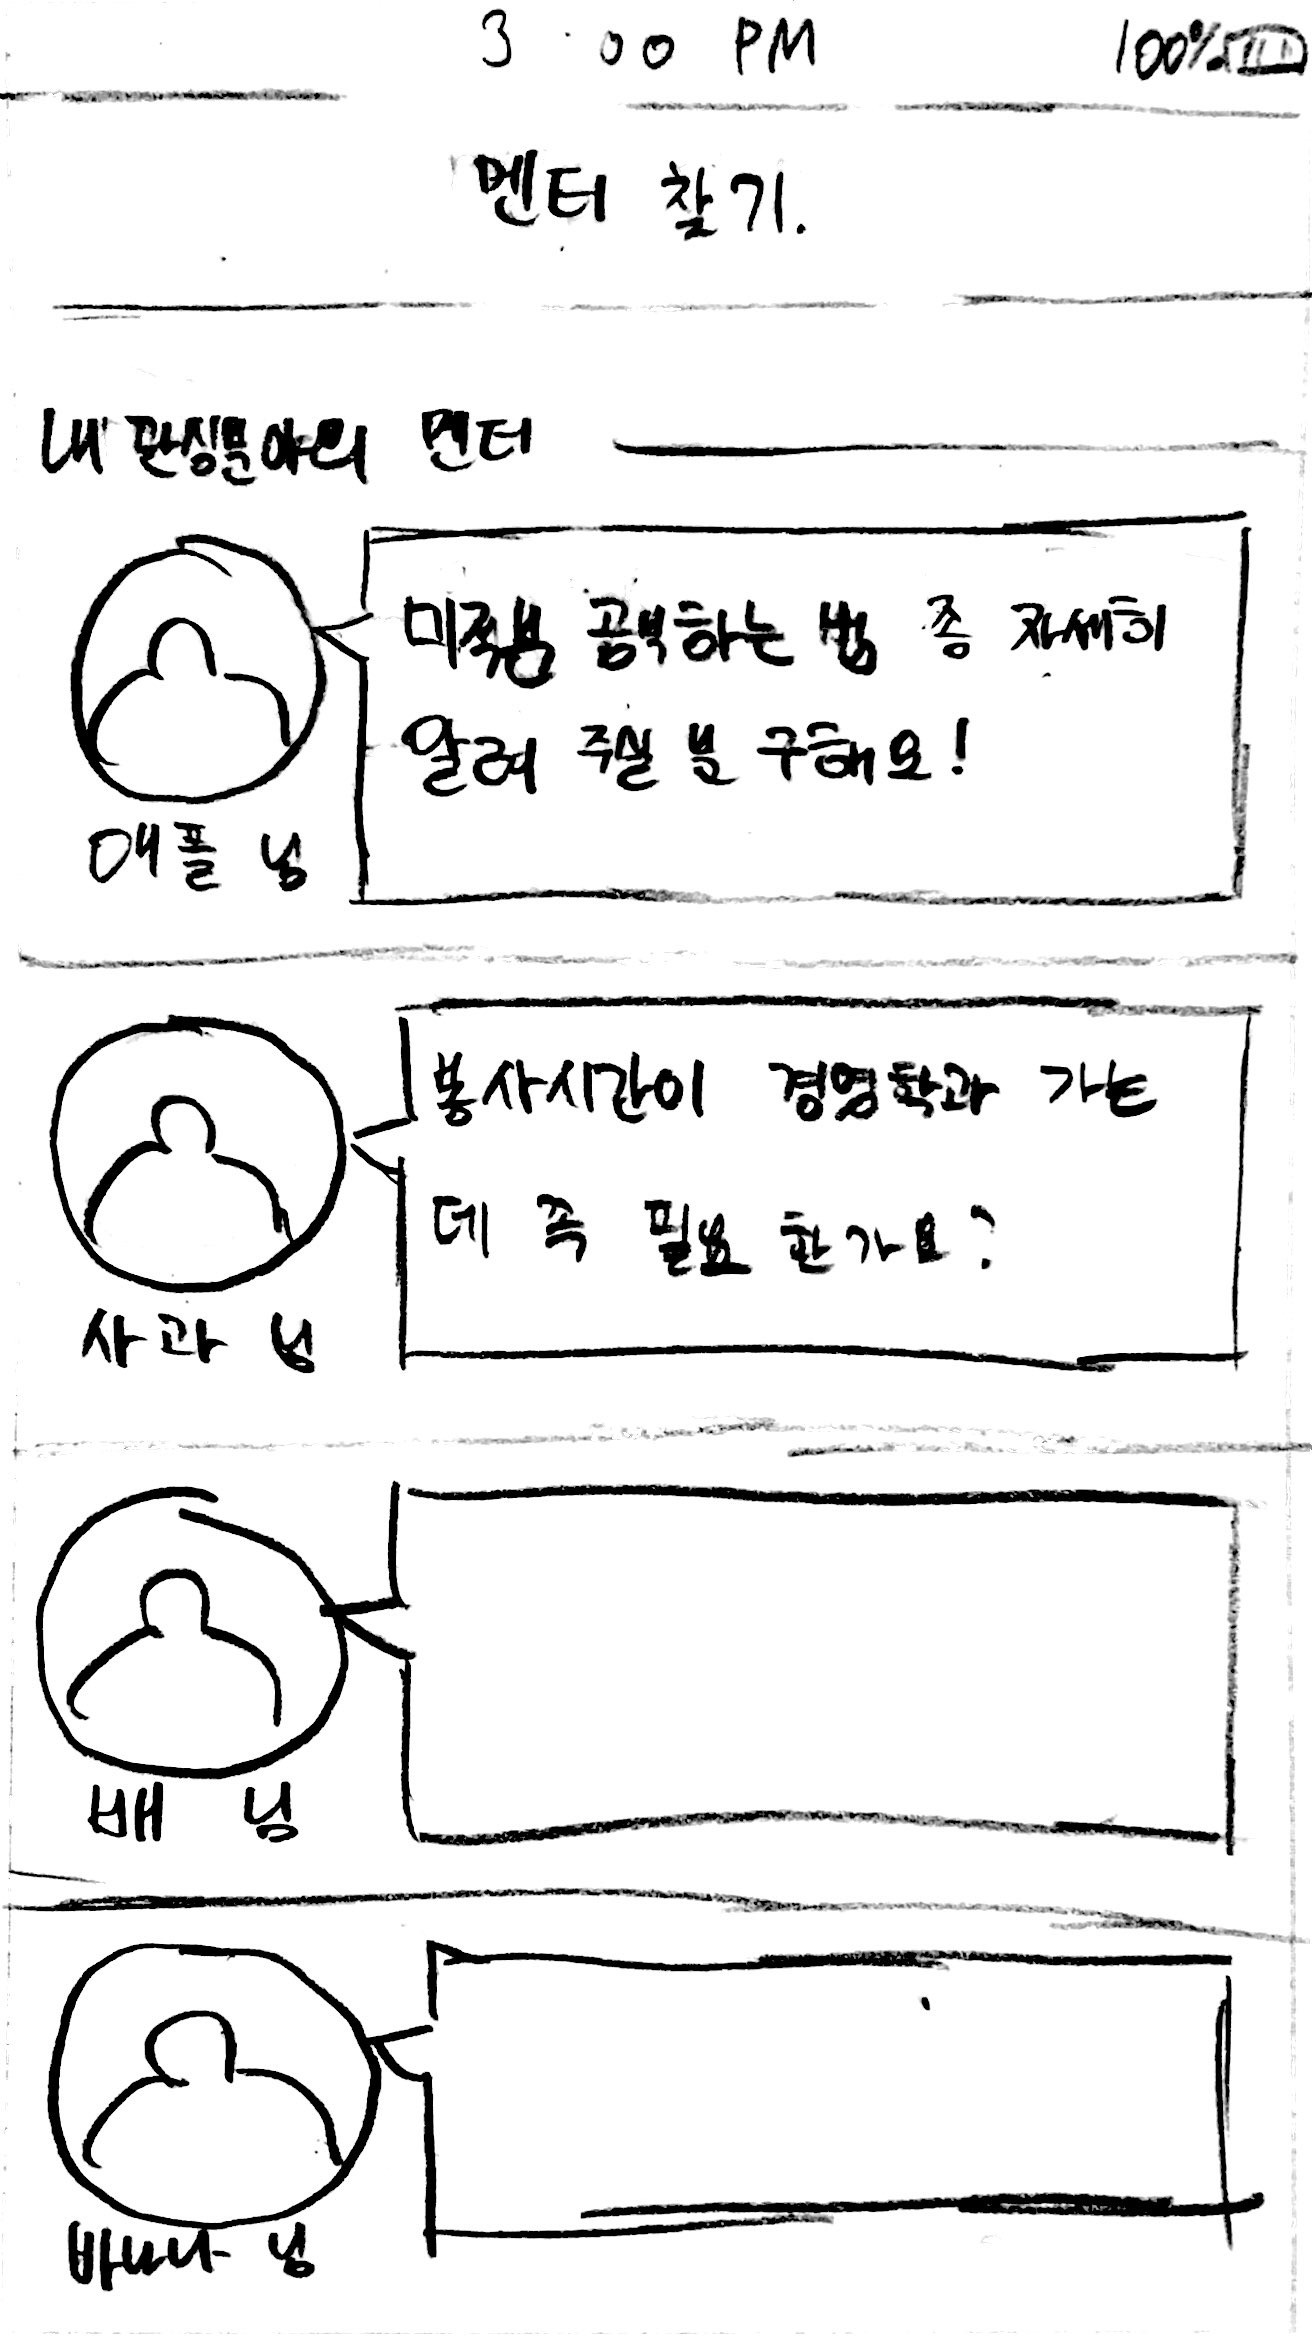 3:00 PM
100%
멘터 찾기.
내 관심분야의 멘터
미적분 공부하는 법 좀 자세히
알려 주실 분 구해요!
애플 님
봉사시간이 경영학과 가는
데 꼭 필요 한가요?
사과 님
배 님
바나나 님